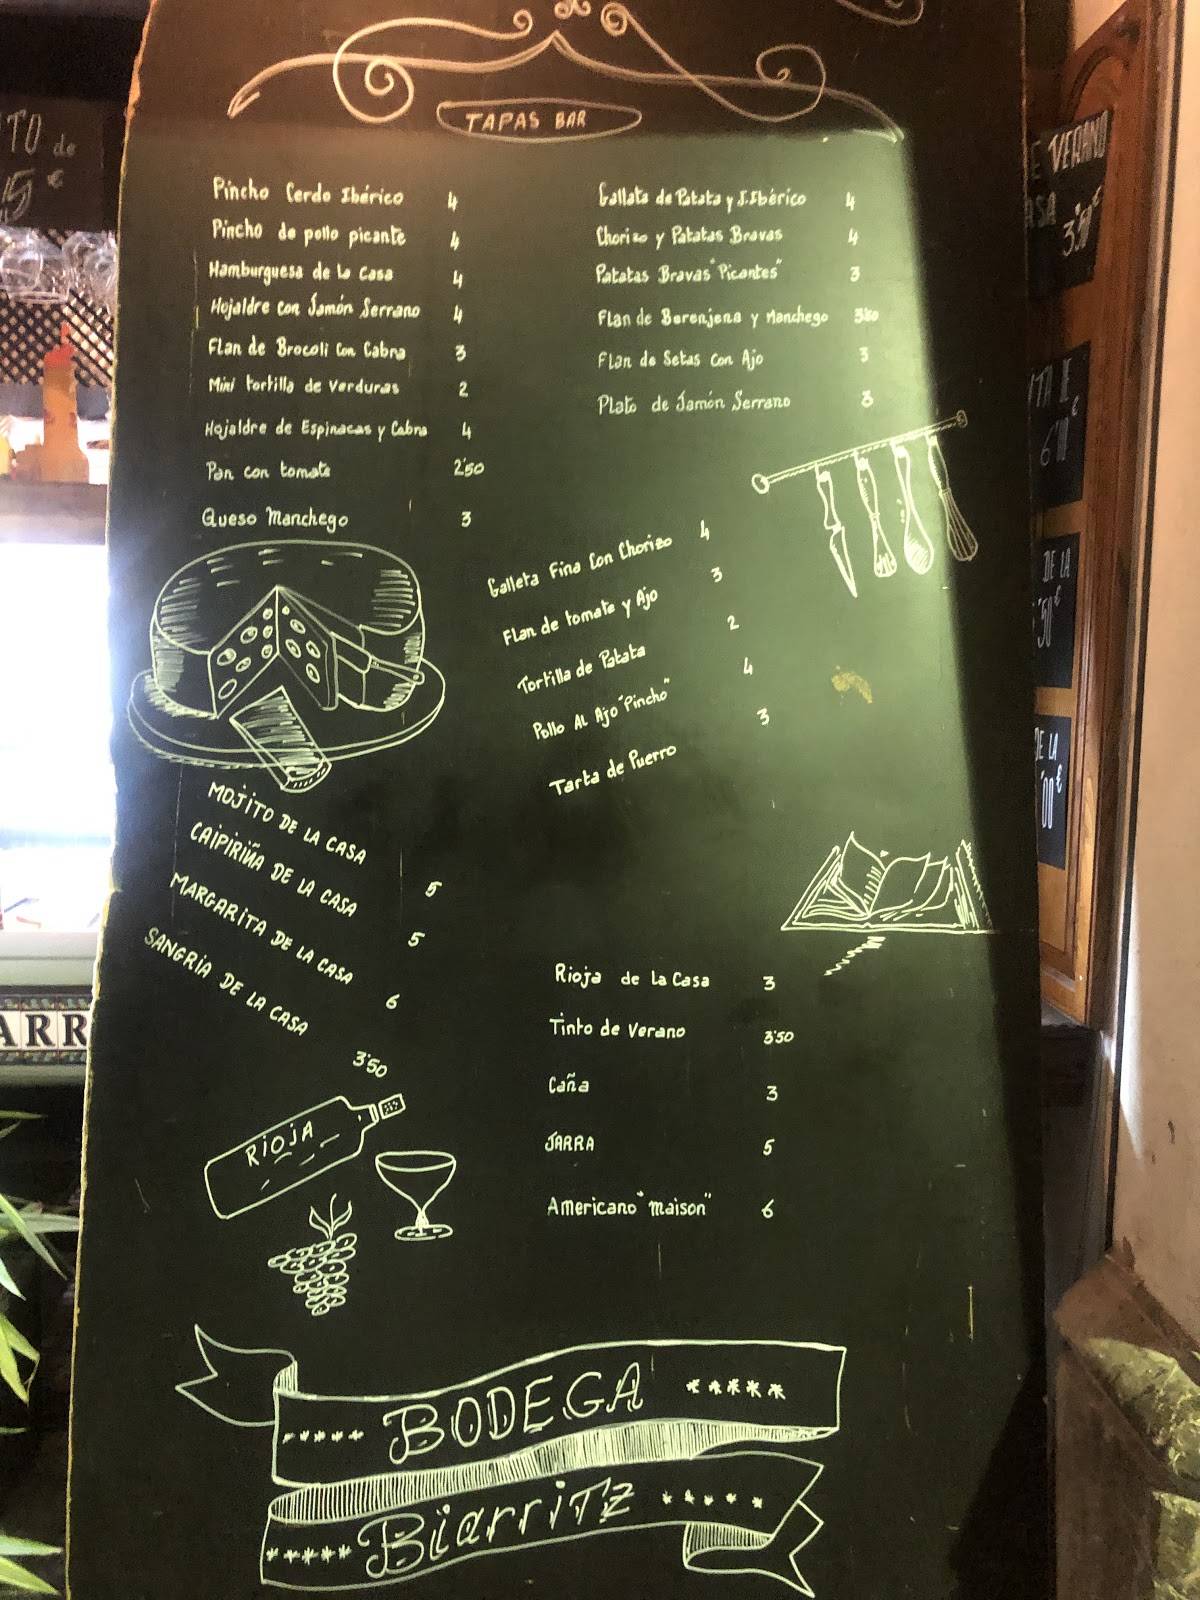 TAPAS BAR
Pincho Cerdo Ibérico 4
Pincho de pollo picante 4
Hamburguesa de la Casa 4
Hojaldre con Jamón Serrano 4
Flan de Brocoli Con Cabra 3
Mini tortilla de Verduras 2
Hojaldre de Espinacas y Cabra 4
Pan con tomate 2'50
Queso Manchego 3
Gallata de Patata y J.Ibérico 4
Chorizo y Patatas Bravas 4
Patatas Bravas "Picantes" 3
Flan de Berenjena y Manchego 3'50
Flan de Setas con Ajo 3
Plato de Jamón Serrano 3
Galleta Fina Con Chorizo 4
Flan de tomate y Ajo 3
Tortilla de Patata 2
Pollo Al Ajo "Pincho" 4
Tarta de Puerro 3
MOJITO DE LA CASA 5
CAIPIRIÑA DE LA CASA 5
MARGARITA DE LA CASA 6
SANGRIA DE LA CASA 3'50
RIOJA
Rioja de La Casa 3
Tinto de Verano 3'50
Caña 3
JARRA 5
Americano "maison" 6
BODEGA
Biarritz
TO de
€
ARR
E VERANO
ASA
3'50€
TA E
€
DE LA
'50€
DE LA
'00€